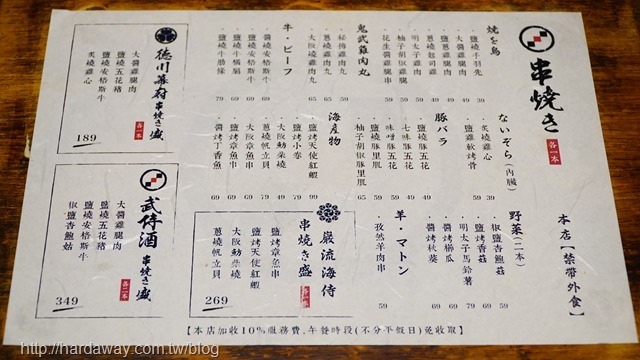 串焼き
各一本
本店【禁帶外食】
焼き鳥
鹽燒牛羽先 39
大醬雞腿肉 49
蔥燒雞腿肉 49
明太子雞肉 59
柚子胡椒雞腿 59
花生醬雞肉串 59
鬼武雞肉丸
秘傳雞肉丸 59
蔥燒雞肉丸 65
大阪燒雞肉丸 65
牛・ビーフ
醬燒安格斯牛 69
鹽燒安格斯牛 69
鹽燒牛橫膈 69
鹽燒牛肋條 79
ないぞら(內臟)
炙燒雞心 39
鹽烤雞軟骨 59
豚バラ
鹽燒五花 49
七味五花 49
味噌豚五花 49
鹽燒豚里肌 59
柚子胡椒豚里肌 65
海産物
鹽烤天使紅蝦 99
鹽烤小卷 99
大阪動柴燒 49
蔥燒帆立貝 79
大阪章魚串 79
鹽烤章魚串 69
醬烤丁香魚 69
野菜(二本)
椒鹽杏鮑菇 59
鹽烤香菇 59
明太子馬鈴薯 39
醬烤櫛瓜 39
醬烤秋葵 39
羊・マトン
孜然羊肉串 59
德川幕府串焼き盛
各一本
大醬雞腿肉
鹽燒五花豬
鹽燒安格斯牛
炙燒雞心
189
武停酒串焼き盛
各一本
大醬雞腿肉
鹽燒五花豬
鹽燒安格斯牛
椒鹽杏鮑菇
349
巖流海侍串焼き盛
鹽烤章魚串
鹽烤天使紅蝦
大阪動柴燒
蔥燒帆立貝
269
【本店加收10%服務費,午餐時段(不分平假日)免收取】
http://hardaway.com.tw/blog